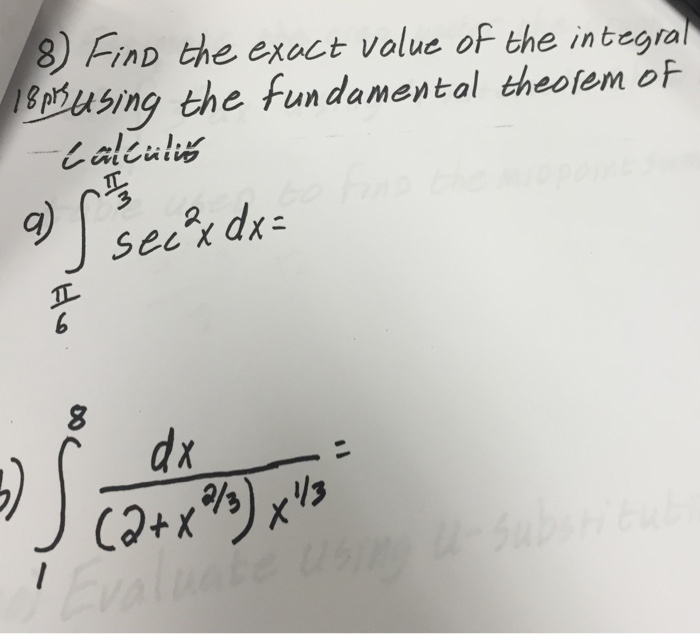 8) Find the exact value of the integral
18pts using the fundamental theorem of
calculus
a) ∫ from π/6 to π/3 sec²x dx =
b) ∫ from 1 to 8 dx / ((2+x^(2/3)) x^(1/3)) =